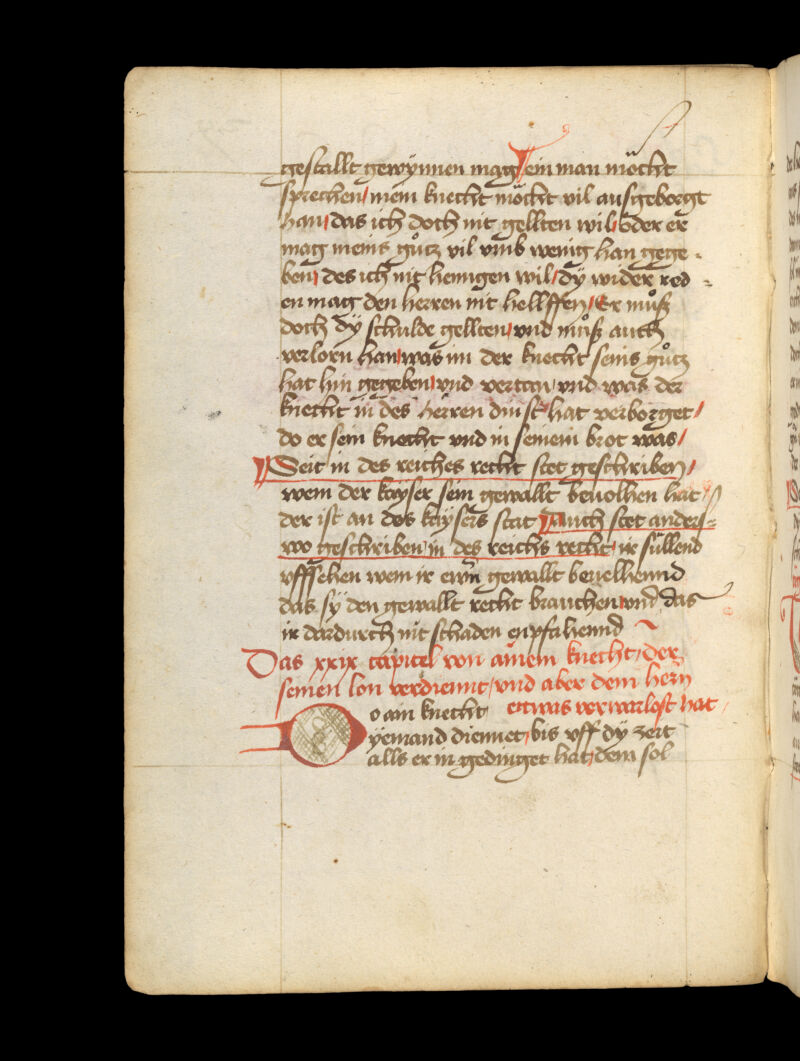 gestallt gewynnen mag / ein man möcht
sprechen / mein knecht möcht vil ausgeborgt
han / das ich doch nit gellten wil / oder er
mag meins gůtz vil vmb wenig han gege-
ben / des ich nit henngen wil / dy wider red-
en mag den herren nit hellffen / Er můsz
doch dy schulde gellten / vnd můsz auch
verlorn han / was im der knecht seins gůtz
hat hin gegeben / vnd vertan / vnd was der
knecht in des herren dinst hat verborget /
do er sein knecht vnd in seinem brot was /
Seit in des reiches recht stet geschriben /
wem der kayser sein gewallt beuolhen hat /
der ist an des kaysers stat Auch stet anders-
wo geschriben in des reichs recht / ir süllend
vffsehen wem ir ewrn gewallt beuelhennd
das sy den gewallt recht brauchen / vnd das
ir dardurch nit schaden enpfahennd
Das xxix capitel von ainem knecht / der
seinen lon verdiennt / vnd aber dem hern
etwas verwarlost hat /
o ain knecht
yemand diennet / bis vff dy zeit
alls er in gedinget hat / dem sol